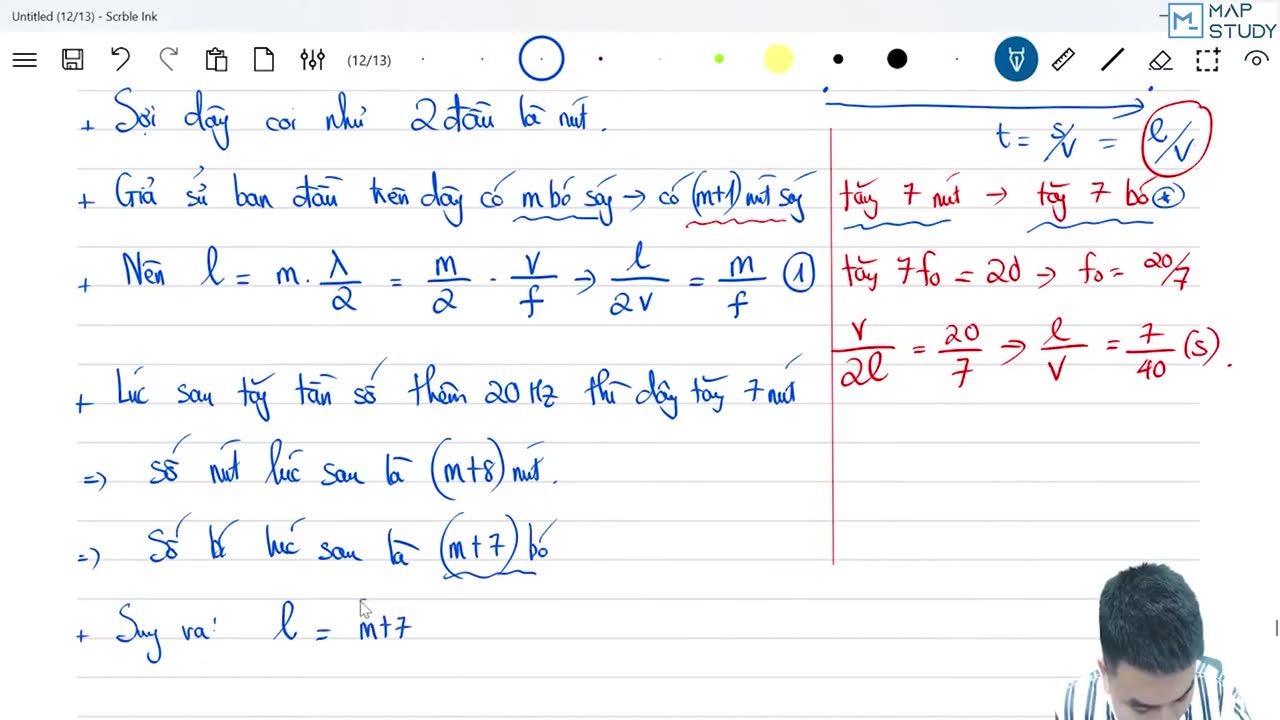 Untitled (12/13) - Scrble Ink
MAP STUDY
(12/13)
+ Sợi dây coi như 2 đầu là nút.
t = s/v = l/v
+ Giả sử ban đầu trên dây có m bó sóng → có (m+1) nút sóng
tăng 7 nút → tăng 7 bó
+ Nên l = m . λ/2 = m/2 . v/f → l/2v = m/f ①
tăng 7f₀ = 20 → f₀ = 20/7
v/2l = 20/7 → l/v = 7/40 (s).
+ Lúc sau tăng tần số thêm 20 Hz thì dây tăng 7 nút
=) số nút lúc sau là (m+8) nút.
=) Số bó lúc sau là (m+7) bó
+ Suy ra: l = m+7